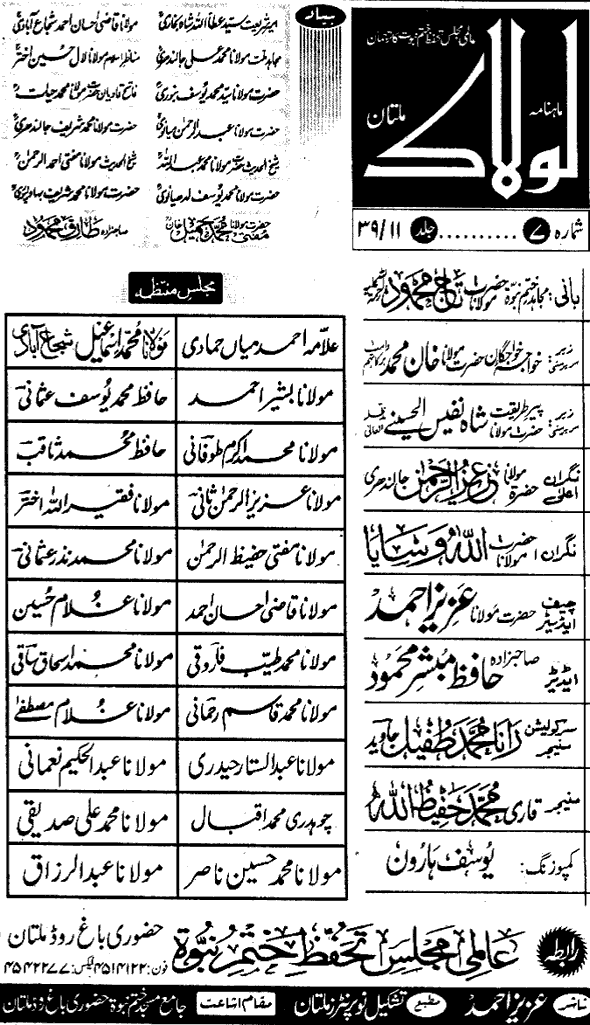 عالمی مجلس تحفظ ختم نبوت کا ترجمان
ماہنامہ
لولاک
ملتان
شمارہ ۷ .......... جلد ۳۹/۱۱
بیاد
امیر شریعت سید عطاء اللہ شاہ بخاریؒ
مولانا قاضی احسان احمد شجاع آبادیؒ
مجاہد ملت مولانا محمد علی جالندھریؒ
مناظر اسلام مولانا لال حسین اخترؒ
حضرت مولانا سید محمد یوسف بنوریؒ
فاتح قادیان حضرت مولانا محمد حیاتؒ
حضرت مولانا عبدالرحمٰن میانویؒ
حضرت مولانا محمد شریف جالندھریؒ
شیخ الحدیث حضرت مولانا محمد عبداللہؒ
شیخ الحدیث مولانا مفتی احمد الرحمٰنؒ
حضرت مولانا محمد یوسف لدھیانویؒ
حضرت مولانا محمد شریف بہاولپوریؒ
حضرت مولانا مفتی محمد جمیل خانؒ
صاحبزادہ طارق محمودؒ
بانی: مجاہد ختم نبوۃ حضرت مولانا تاج محمود
زیر سرپرستی: خواجہ خواجگان حضرت مولانا خان محمد
زیر سرپرستی: پیر طریقت حضرت مولانا شاہ نفیس الحسینی
نگران اعلیٰ: حضرت مولانا عزیز الرحمٰن جالندھری
نگران: حضرت مولانا اللہ وسایا
چیف ایڈیٹر: حضرت مولانا عزیز احمد
ایڈیٹر: صاحبزادہ حافظ مبشر محمود
سرکولیشن منیجر: رانا محمد طفیل جاوید
منیجر: قاری محمد حفیظ اللہ
کمپوزنگ: یوسف ہارون
مجلس منتظمہ
علامہ احمد میاں حمادی
مولانا محمد اسماعیل شجاع آبادی
مولانا بشیر احمد
حافظ محمد یوسف عثمانی
مولانا محمد اکرم طوفانی
حافظ محمد ثاقب
مولانا عزیز الرحمٰن ثانی
مولانا فقیر اللہ اختر
مولانا مفتی حفیظ الرحمٰن
مولانا محمد نذر عثمانی
مولانا قاضی احسان احمد
مولانا غلام حسین
مولانا محمد طیب فاروقی
مولانا محمد اسحاق ساقی
مولانا محمد قاسم رحمانی
مولانا غلام مصطفےٰ
مولانا عبدالستار حیدری
مولانا عبدالحکیم نعمانی
چوہدری محمد اقبال
مولانا محمد علی صدیقی
مولانا محمد حسین ناصر
مولانا عبدالرزاق
رابطہ
عالمی مجلس تحفظ ختم نبوۃ
حضوری باغ روڈ ملتان
فون: 4514122 فیکس: 4542277
ناشر عزیز احمد مطبع تشکیل نو پرنٹرز ملتان مقام اشاعت جامع مسجد ختم نبوۃ حضوری باغ روڈ ملتان